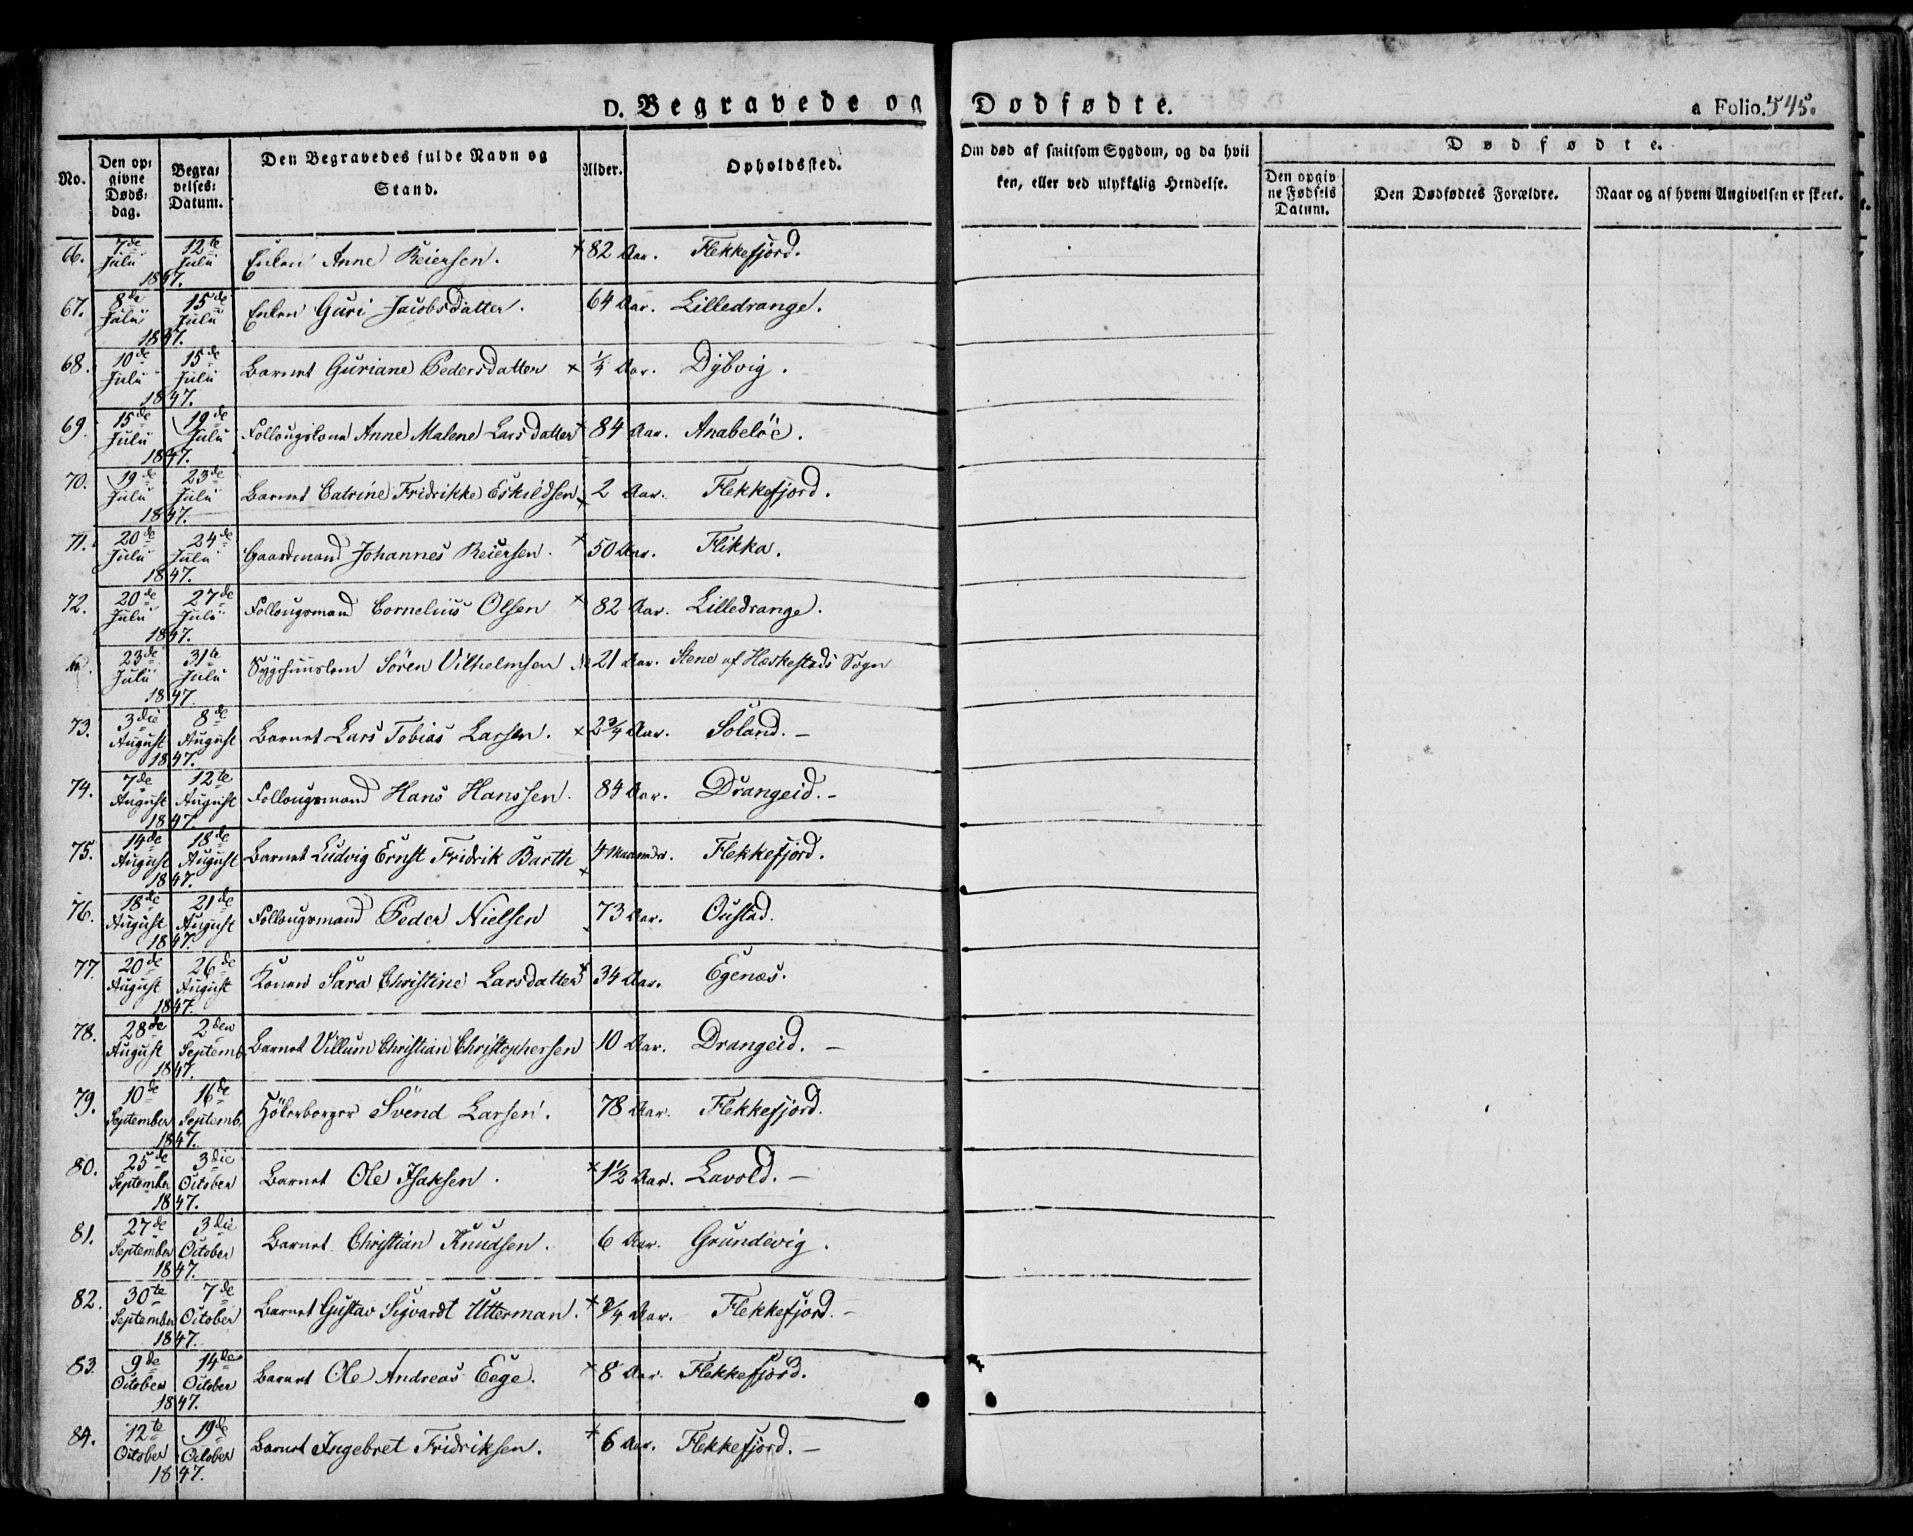 D. Begravede og Dødfødte.
a Folio. 545.
No.
Den op:
givne
Døds:
dag.
Begra:
velses:
Datum.
Den Begravedes fulde Navn og
Stand.
Alder.
Opholdssted.
Om død af smitsom Sygdom, og da hvil
ken, eller ved ulykkelig Hendelse.
Dødfødte.
Den opgiv
ne Fødsels
Datum.
Den Dødfødtes Forældre.
Naar og af hvem Angivelsen er skeet.
66. 7de Juli 12te Juli 1847. Enken Anne Reiersen. × 82 Aar. Flekkefjord.
67. 8de Juli 15de Juli 1847. Enken Guri Jacobsdatter. 64 Aar. Lilledrange.
68. 10de Juli 15de Juli 1847. Barnet Guriane Pedersdatter × 1/4 Aar. Dybvig.
69. 15de Juli 19de Juli 1847. Follougskone Anne Malene Larsdatter × 84 Aar. Anabeløe.
70. 19de Juli 23de Juli 1847. Barnet Catrine Fridrikke Eskildsen × 2 Aar. Flekkefjord.
71. 20de Juli 24de Juli 1847. Gaardmand Johannes Reiersen. × 50 Aar. Flikka.
72. 20de Juli 27de Juli 1847. Follougsmand Cornelius Olsen × 82 Aar. Lilledrange.
23de Juli 31te Juli 1847. Sygehuuslem Sören Vilhelmsen 21 Aar. Stene af Heskestads Sogn
73. 3die August 8de August 1847. Barnet Lars Tobias Larsen. × 2 3/4 Aar. Soland. –
74. 7de August 12te August 1847. Follougsmand Hans Hanssen. 84 Aar. Drangeid. –
75. 14de August 18de August 1847. Barnet Ludvig Ernst Fridrik Barth × 4 Maaneder. Flekkefjord.
76. 18de August 21de August 1847. Follougsmand Peder Nielsen 73 Aar. Oustad.
77. 20de August 26de August 1847. Konen Sara Christine Larsdatter × 34 Aar. Egenæs.
78. 28de August 2den Septemb. 1847. Barnet Villum Christian Christophersen 10 Aar. Drangeid. –
79. 10de September 16de Septemb. 1847. Hökerborger Svend Larsen. 78 Aar. Flekkefjord.
80. 25de September 3die October 1847. Barnet Ole Isaksen. × 1 1/2 Aar. Lavold. –
81. 27de September 3die October 1847. Barnet Christian Knudsen. 6 Aar. Grundevig.
82. 30te September 7de October 1847. Barnet Gustav Sigvardt Utterman. × 3/4 Aar. Flekkefjord. –
83. 9de October 14de October 1847. Barnet Ole Andreas Eege. × 8 Aar. Flekkefjord.
84. 12te October 19de October 1847. Barnet Ingebret Fridriksen. × 6 Aar. Flekkefjord. –